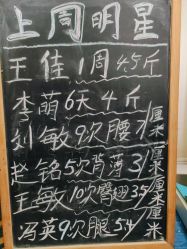 上周明星
王佳1周4.5斤
李萌6天4斤
刘敏9次腰7厘米
赵铭5次背薄3厘米
王敏10次臀翘3.5厘米
冯英9次腿5.4厘米